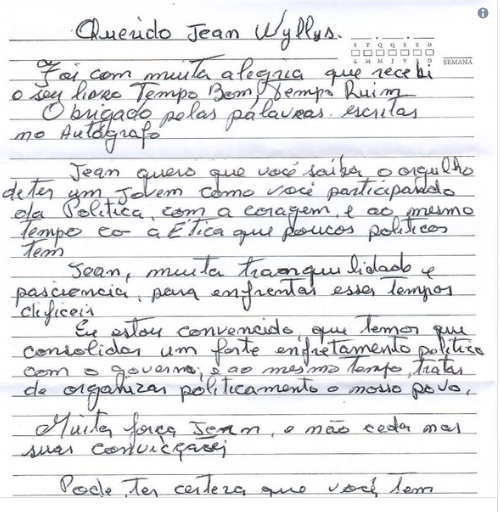 Querido Jean Wyllys.
S T Q Q S S D
L M M J V S D
SEMANA
Foi com muita alegria que recebi
o seu livro Tempo Bom, Tempo Ruim
Obrigado pelas palavras escritas
no Autógrafo
Jean quero que você saiba o orgulho
de ter um jovem como você participando
da Politica, com a coragem, e ao mesmo
tempo co a Ética que poucos politicos
tem
Jean, muita tranquilidade e
pasciencia, para enfrentar esses tempos
dificeis
Eu estou convencido, que temos que
consolidar um forte enfretamento politico
com o governo, e ao mesmo tempo, tratar
de organizar politicamente o nosso povo.
Muita força Jean, e não ceda nas
suas convicções
Pode, ter certeza que você, tem